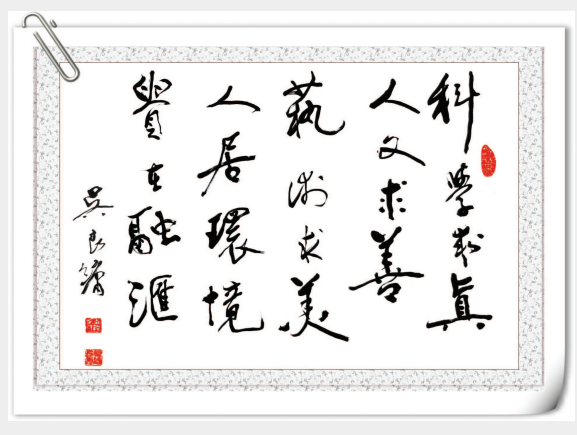 科學求真
人文求善
藝術求美
人居環境
貴在融滙
吳良鏞